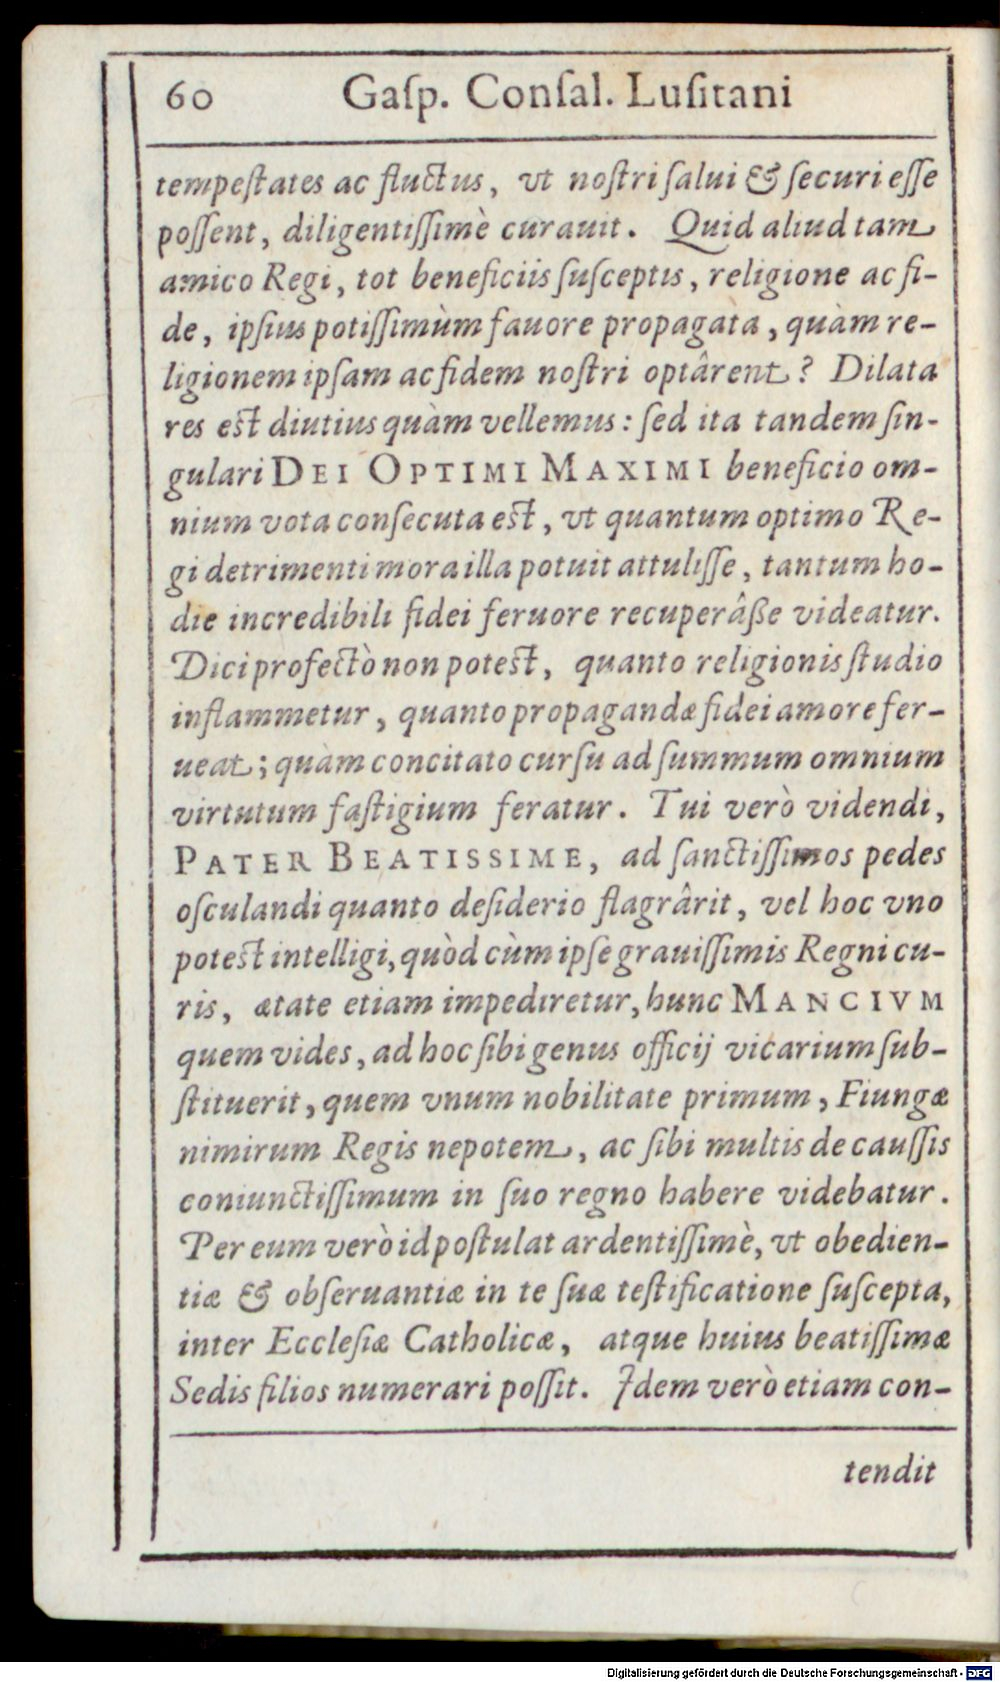 60 Gaſp. Conſal. Luſitani
tempeſtates ac fluctus, vt noſtri ſalui & ſecuri eſſe
poſſent, diligentiſſimè curauit. Quid aliud tam
amico Regi, tot beneficiis ſuſceptis, religione ac fi-
de, ipſius potiſſimùm fauore propagàta, quàm re-
ligionem ipſam ac fidem noſtri optârent? Dilata
res eſt diutius quàm vellemus: ſed ita tandem ſin-
gulari DEI OPTIMI MAXIMI beneficio om-
nium vota conſecuta eſt, vt quantum optimo Re-
gi detrimenti mora illa potuit attuliſſe, tantum ho-
die incredibili fidei feruore recuperâße videatur.
Dici profectò non poteſt, quanto religionis ſtudio
inflammetur, quanto propagandæ fidei amore fer-
ueat; quàm concitato curſu ad ſummum omnium
virtutum faſtigium feratur. Tui verò videndi,
PATER BEATISSIME, ad ſanctiſſimos pedes
oſculandi quanto deſiderio flagrârit, vel hoc vno
poteſt intelligi, quòd cùm ipſe grauiſſimis Regni cu-
ris, ætate etiam impediretur, hunc MANCIVM
quem vides, ad hoc ſibi genus officij vicarium ſub-
ſtituerit, quem vnum nobilitate primum, Fiungæ
nimirum Regis nepotem, ac ſibi multis de cauſſis
coniunctiſſimum in ſuo regno habere videbatur.
Per eum verò id poſtulat ardentiſſimè, vt obedien-
tiæ & obſeruantiæ in te ſuæ teſtificatione ſuſcepta,
inter Eccleſiæ Catholicæ, atque huius beatiſſimæ
Sedis filios numerari poſſit. Idem verò etiam con-
tendit
Digitalisierung gefördert durch die Deutsche Forschungsgemeinschaft - DFG